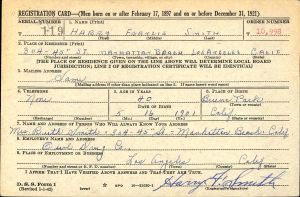 REGISTRATION CARD—(Men born on or after February 17, 1897 and on or before December 31, 1921)
SERIAL NUMBER 1. NAME (Print) ORDER NUMBER
119 HARRY FRANCIS SMITH 10,998
2. PLACE OF RESIDENCE (Print)
304-45 ST. MANHATTAN BEACH LOS ANGELES CALIF.
[THE PLACE OF RESIDENCE GIVEN ON THE LINE ABOVE WILL DETERMINE LOCAL BOARD
JURISDICTION; LINE 2 OF REGISTRATION CERTIFICATE WILL BE IDENTICAL]
3. MAILING ADDRESS
Same
4. TELEPHONE 5. AGE IN YEARS 6. PLACE OF BIRTH
None 40 Park
DATE OF BIRTH
16 1901 Calif
7. NAME AND ADDRESS OF PERSON WHO WILL ALWAYS KNOW YOUR ADDRESS
Mrs Ruth Smith - 304-45 St - Manhattan Beach Calif
8. EMPLOYER'S NAME AND ADDRESS
Owl Drug Co.,
9. PLACE OF EMPLOYMENT OR BUSINESS
Los Angeles Calif
I AFFIRM THAT I HAVE VERIFIED ABOVE ANSWERS AND THAT THEY ARE TRUE.
D. S. S. Form 1
(Revised 1-1-42)
Harry F. Smith